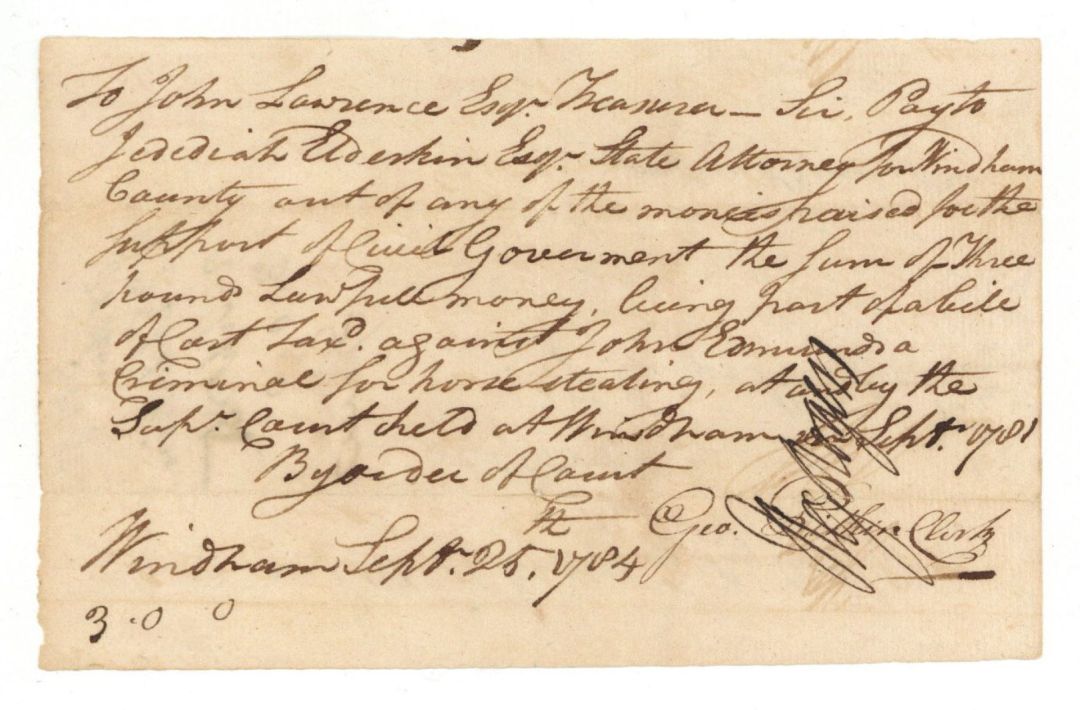 To John Lawrence Esqr. Treasurer – Sir, Pay to
Jedediah Elderkin Esqr. State Attorney for Windham
County out of any of the monies raised for the
Support of Civil Goverment the Sum of Three
pounds Lawfull money, being part of a bill
of Cost Taxd. against John Edmunds a
Criminal for horse stealing, at and by the
Supr. Court held at Windham in Septr. 1781
By order of Court
Geo. Pitkin Clerk
Windham Septr. 25th, 1784
3.0 0